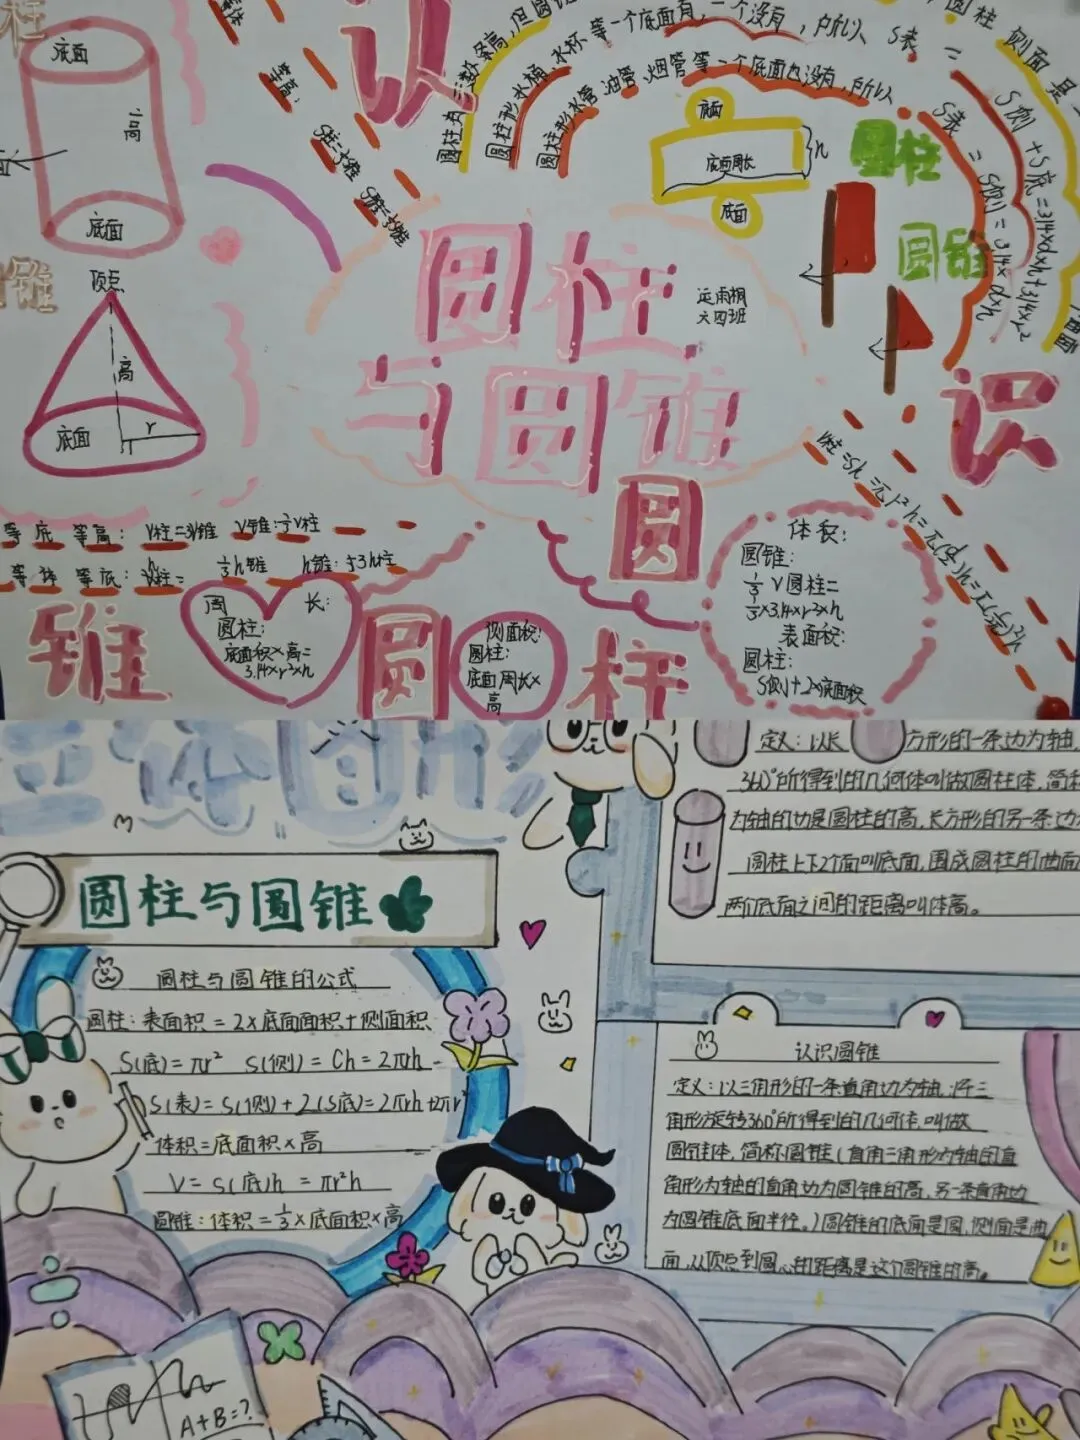 柱
底面
高
底面
锥
顶点
高
底面
r
认
识
等高:
圆柱形水桶、水杯、等一个底面有,一个没有,所以 S表=S侧+S底=3.14×d×h+3.14×r²
圆柱形水管、油管、烟管等一个底面也没有,所以 S表=S侧=3.14×d×h
圆柱 侧面是
底面
底面周长
h
底面
圆柱
圆锥
圆柱
与圆锥
六四班
等底 等高: V柱=3V锥 V锥=⅓V柱
等体 等底:
V柱=Sh=πr²h
锥
圆
柱
圆
周长:
圆柱:
底面积×高=
3.14×r²×h
侧面积:
圆柱:
底面周长×
高
体积:
圆锥:
⅓V圆柱=
⅓×3.14×r²×h
表面积:
圆柱:
S侧+2×底面积
立体图形
圆柱与圆锥
圆柱与圆锥的公式
圆柱:表面积=2×底面面积+侧面积
S(底)=πr² S(侧)=Ch=2πrh
S(表)=S(侧)+2(S底)=2πrh+2πr²
体积=底面积×高
V=S(底)h=πr²h
圆锥:体积=⅓×底面积×高
A+B=?
定义:以长方形的一条边为轴,
360°所得到的几何体叫做圆柱体,简称
为轴的边是圆柱的高,长方形的另一条边
圆柱上下2个面叫底面,围成圆柱的曲面
两个底面之间的距离叫体高。
认识圆锥
定义:以三角形的一条直角边为轴,将三
角形旋转360°所得到的几何体,叫做
圆锥体,简称圆锥(直角三角形为轴的直
角形为轴的直角边为圆锥的高,另一条直角边
为圆锥底面半径。)圆锥的底面是圆,侧面是曲
面,从顶点到圆心的距离是这个圆锥的高。